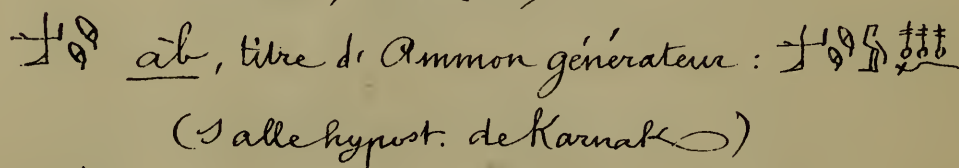 àb, titre d'Ammon générateur :
(Salle hypost. de Karnak)